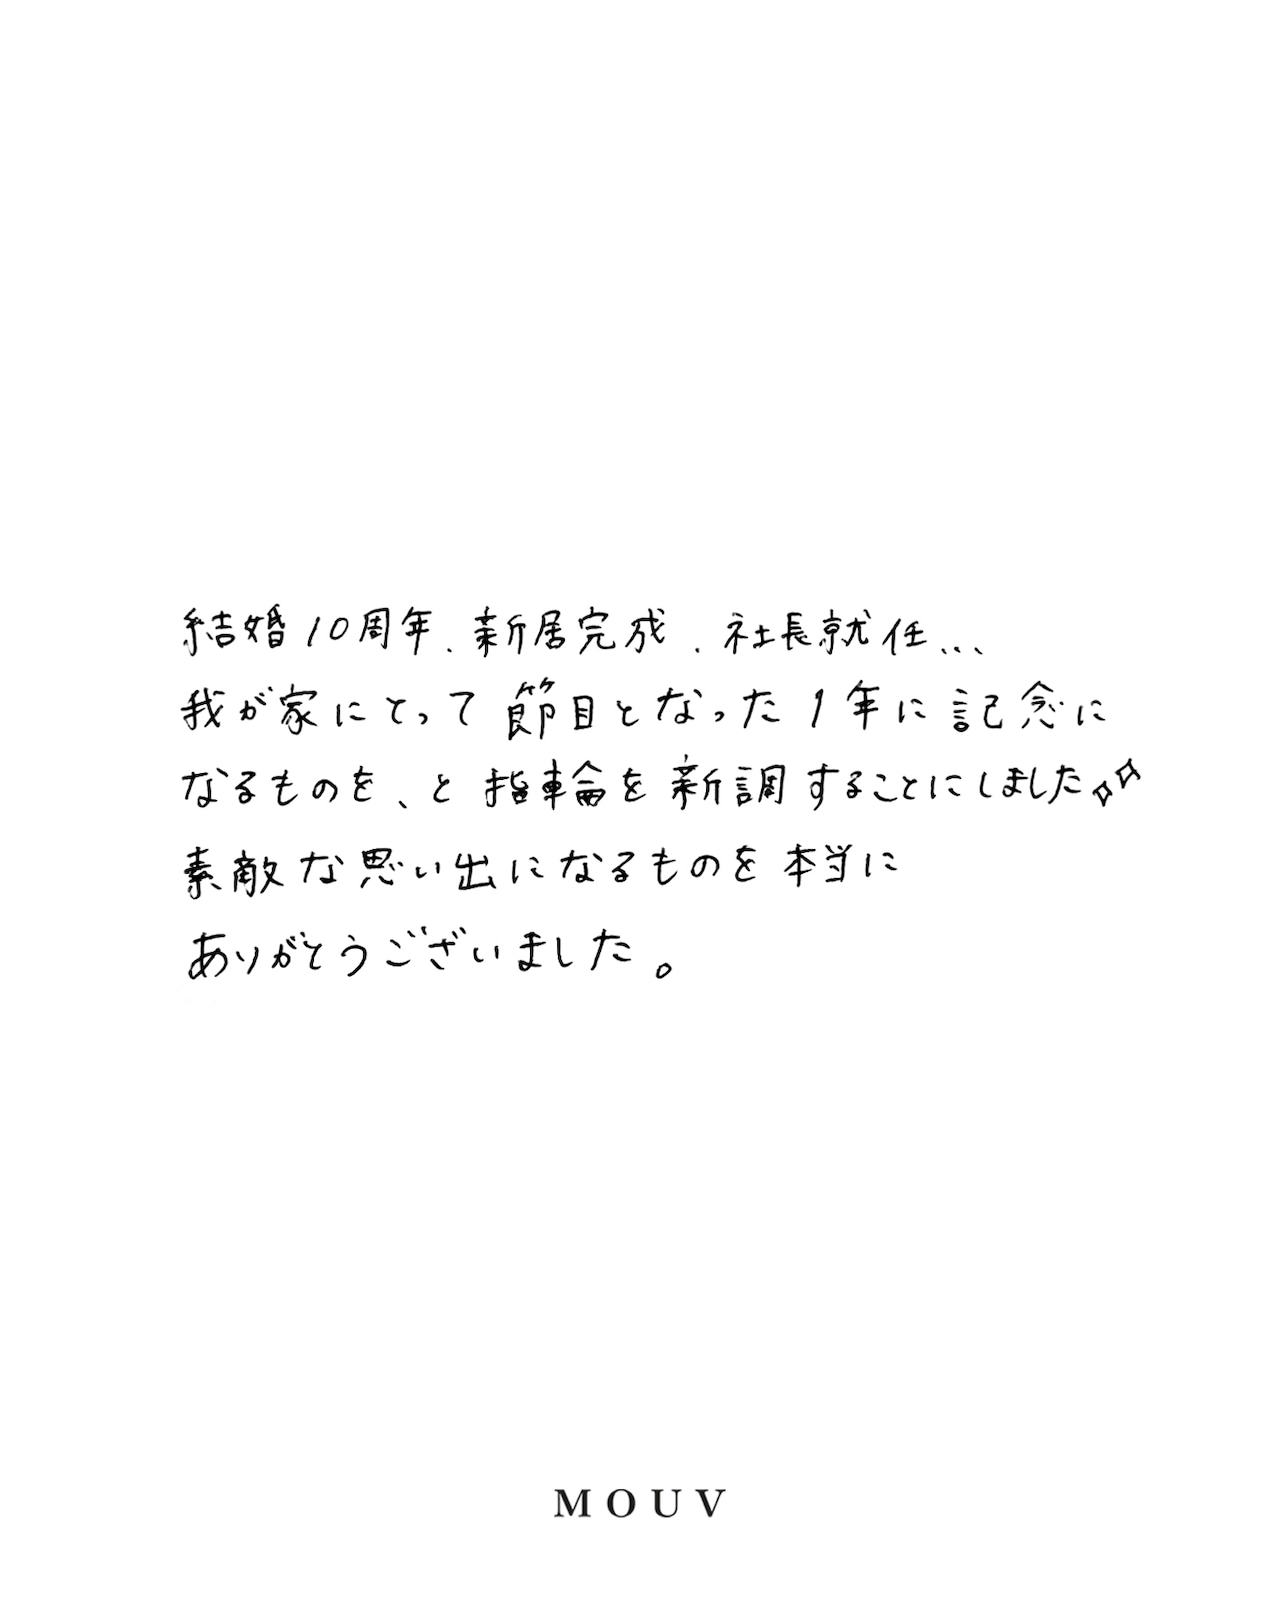 結婚10周年、新居完成、社長就任...
我が家にとって節目となった1年に記念に
なるものを、と指輪を新調することにしました✧✧
素敵な思い出になるものを本当に
ありがとうございました。
MOUV